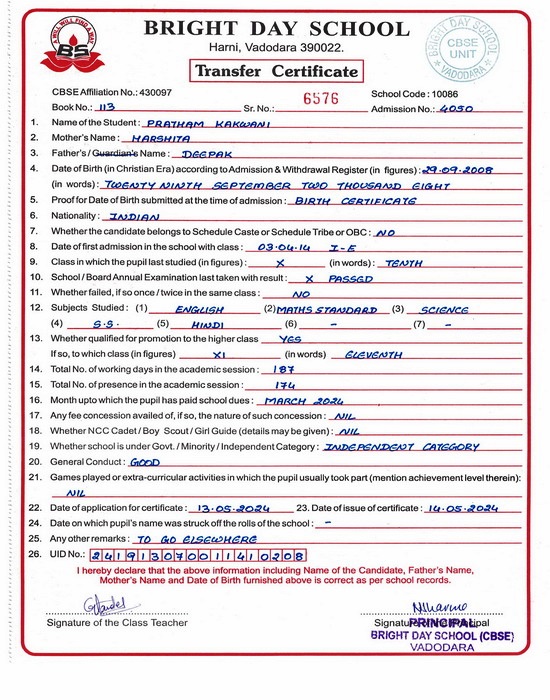 A WILL WILL FIND A WAY
BS
BRIGHT DAY SCHOOL
Harni, Vadodara 390022.
BRIGHT DAY SCHOOL
CBSE
UNIT
VADODARA
Transfer Certificate
CBSE Affiliation No.: 430097 School Code : 10086
Book No.: 113 Sr. No.: 6576 Admission No.: 4050
1. Name of the Student : PRATHAM KAKWANI
2. Mother's Name : HARSHITA
3. Father's / Guardian's Name : DEEPAK
4. Date of Birth (in Christian Era) according to Admission & Withdrawal Register (in figures) : 29.09.2008
(in words) : TWENTY NINTH SEPTEMBER TWO THOUSAND EIGHT
5. Proof for Date of Birth submitted at the time of admission : BIRTH CERTIFICATE
6. Nationality : INDIAN
7. Whether the candidate belongs to Schedule Caste or Schedule Tribe or OBC : NO
8. Date of first admission in the school with class : 03.04.14 I-E
9. Class in which the pupil last studied (in figures) : X (in words) : TENTH
10. School / Board Annual Examination last taken with result : X PASSED
11. Whether failed, if so once / twice in the same class : NO
12. Subjects Studied : (1) ENGLISH (2) MATHS STANDARD (3) SCIENCE
(4) S.S. (5) HINDI (6) - (7) -
13. Whether qualified for promotion to the higher class YES
If so, to which class (in figures) XI (in words) ELEVENTH
14. Total No. of working days in the academic session : 187
15. Total No. of presence in the academic session : 174
16. Month upto which the pupil has paid school dues : MARCH 2024
17. Any fee concession availed of, if so, the nature of such concession : NIL
18. Whether NCC Cadet / Boy Scout / Girl Guide (details may be given) : NIL
19. Whether school is under Govt. / Minority / Independent Category : INDEPENDENT CATEGORY
20. General Conduct : GOOD
21. Games played or extra-curricular activities in which the pupil usually took part (mention achievement level therein) :
NIL
22. Date of application for certificate : 13.05.2024 23. Date of issue of certificate : 14.05.2024
24. Date on which pupil's name was struck off the rolls of the school : -
25. Any other remarks : TO GO ELSEWHERE
26. UID No.: 241913070011410208
I hereby declare that the above information including Name of the Candidate, Father's Name,
Mother's Name and Date of Birth furnished above is correct as per school records.
Signature of the Class Teacher Signature of the Principal
PRINCIPAL
BRIGHT DAY SCHOOL (CBSE)
VADODARA